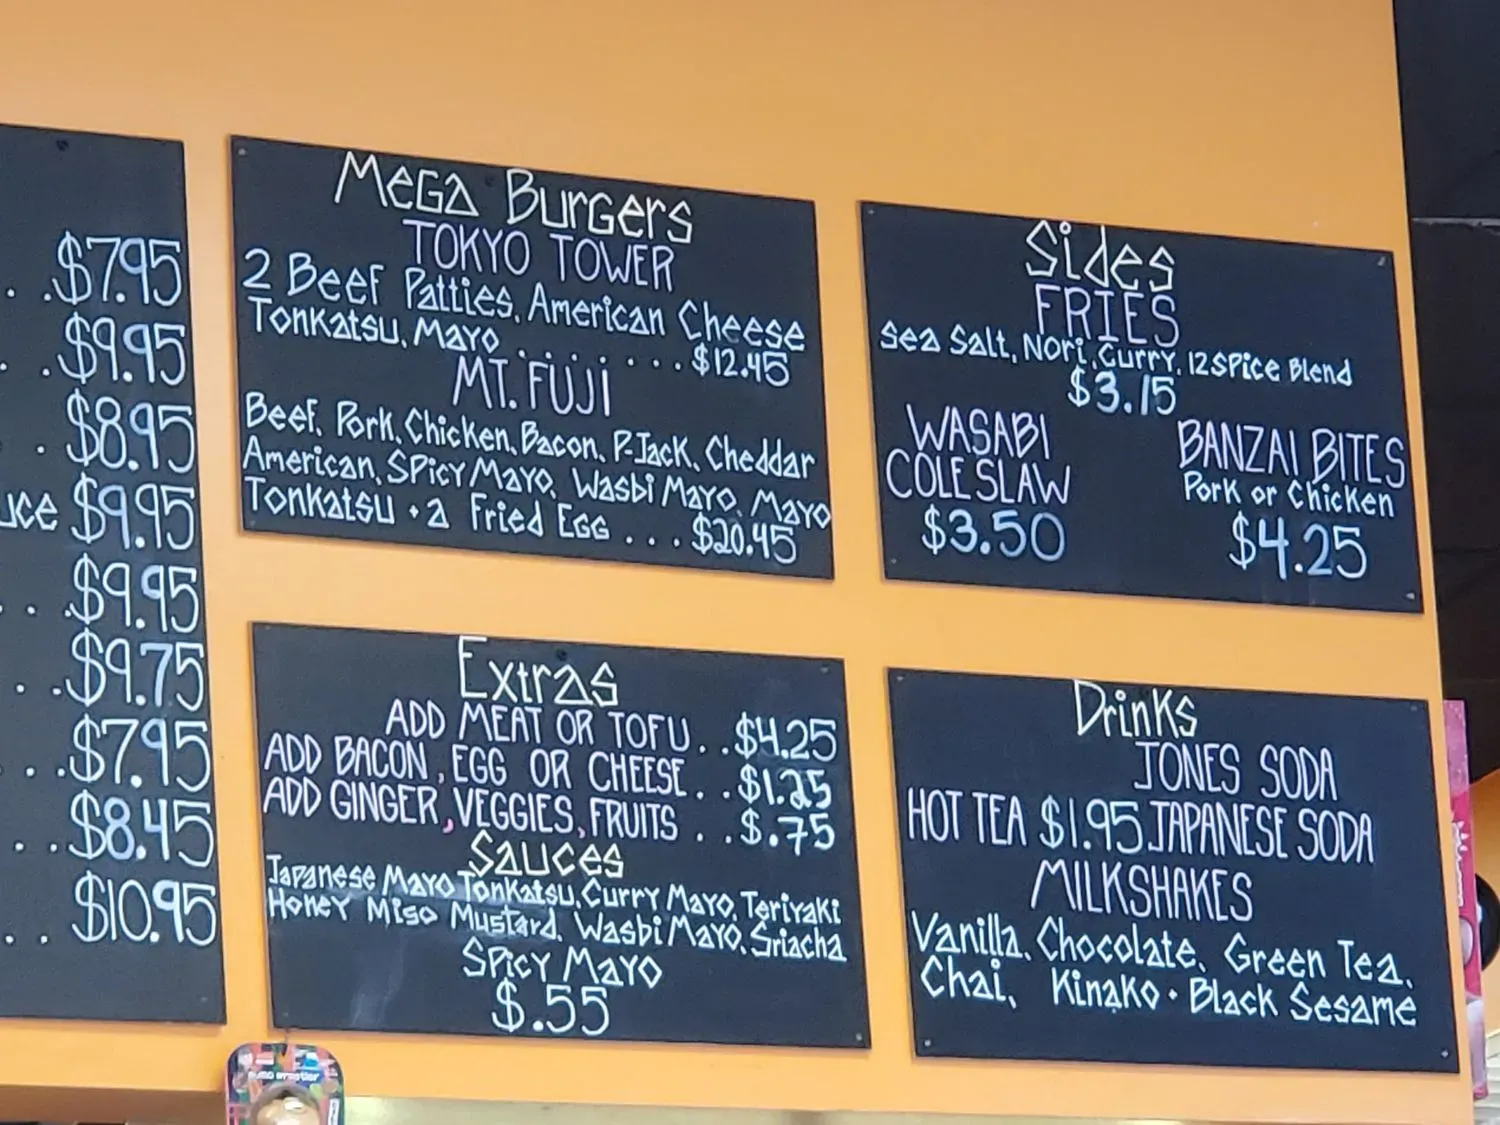 . .$7.95
. .$9.95
. $8.95
uce $9.95
. . .$9.95
. .$9.75
. . .$7.95
. . .$8.45
. . $10.95
MEGA Burgers
TOKYO TOWER
2 Beef Patties, American Cheese
Tonkatsu, Mayo . . . . . . . $12.45
MT. FUJI
Beef, Pork, Chicken, Bacon, P-Jack, Cheddar
American, Spicy Mayo, Wasbi Mayo, Mayo
Tonkatsu + a Fried Egg . . . $20.45
Sides
FRIES
Sea Salt, Nori, Curry, 12 Spice Blend
$3.15
WASABI
COLE SLAW
$3.50
BANZAI BITES
Pork or Chicken
$4.25
Extras
ADD MEAT OR TOFU . . $4.25
ADD BACON, EGG OR CHEESE . . $1.25
ADD GINGER, VEGGIES, FRUITS . . $.75
Sauces
Japanese Mayo Tonkatsu, Curry Mayo, Teriyaki
Honey Miso Mustard, Wasbi Mayo, Sriacha
Spicy Mayo
$.55
Drinks
JONES SODA
HOT TEA $1.95 JAPANESE SODA
MILKSHAKES
Vanilla, Chocolate, Green Tea,
Chai, Kinako + Black Sesame